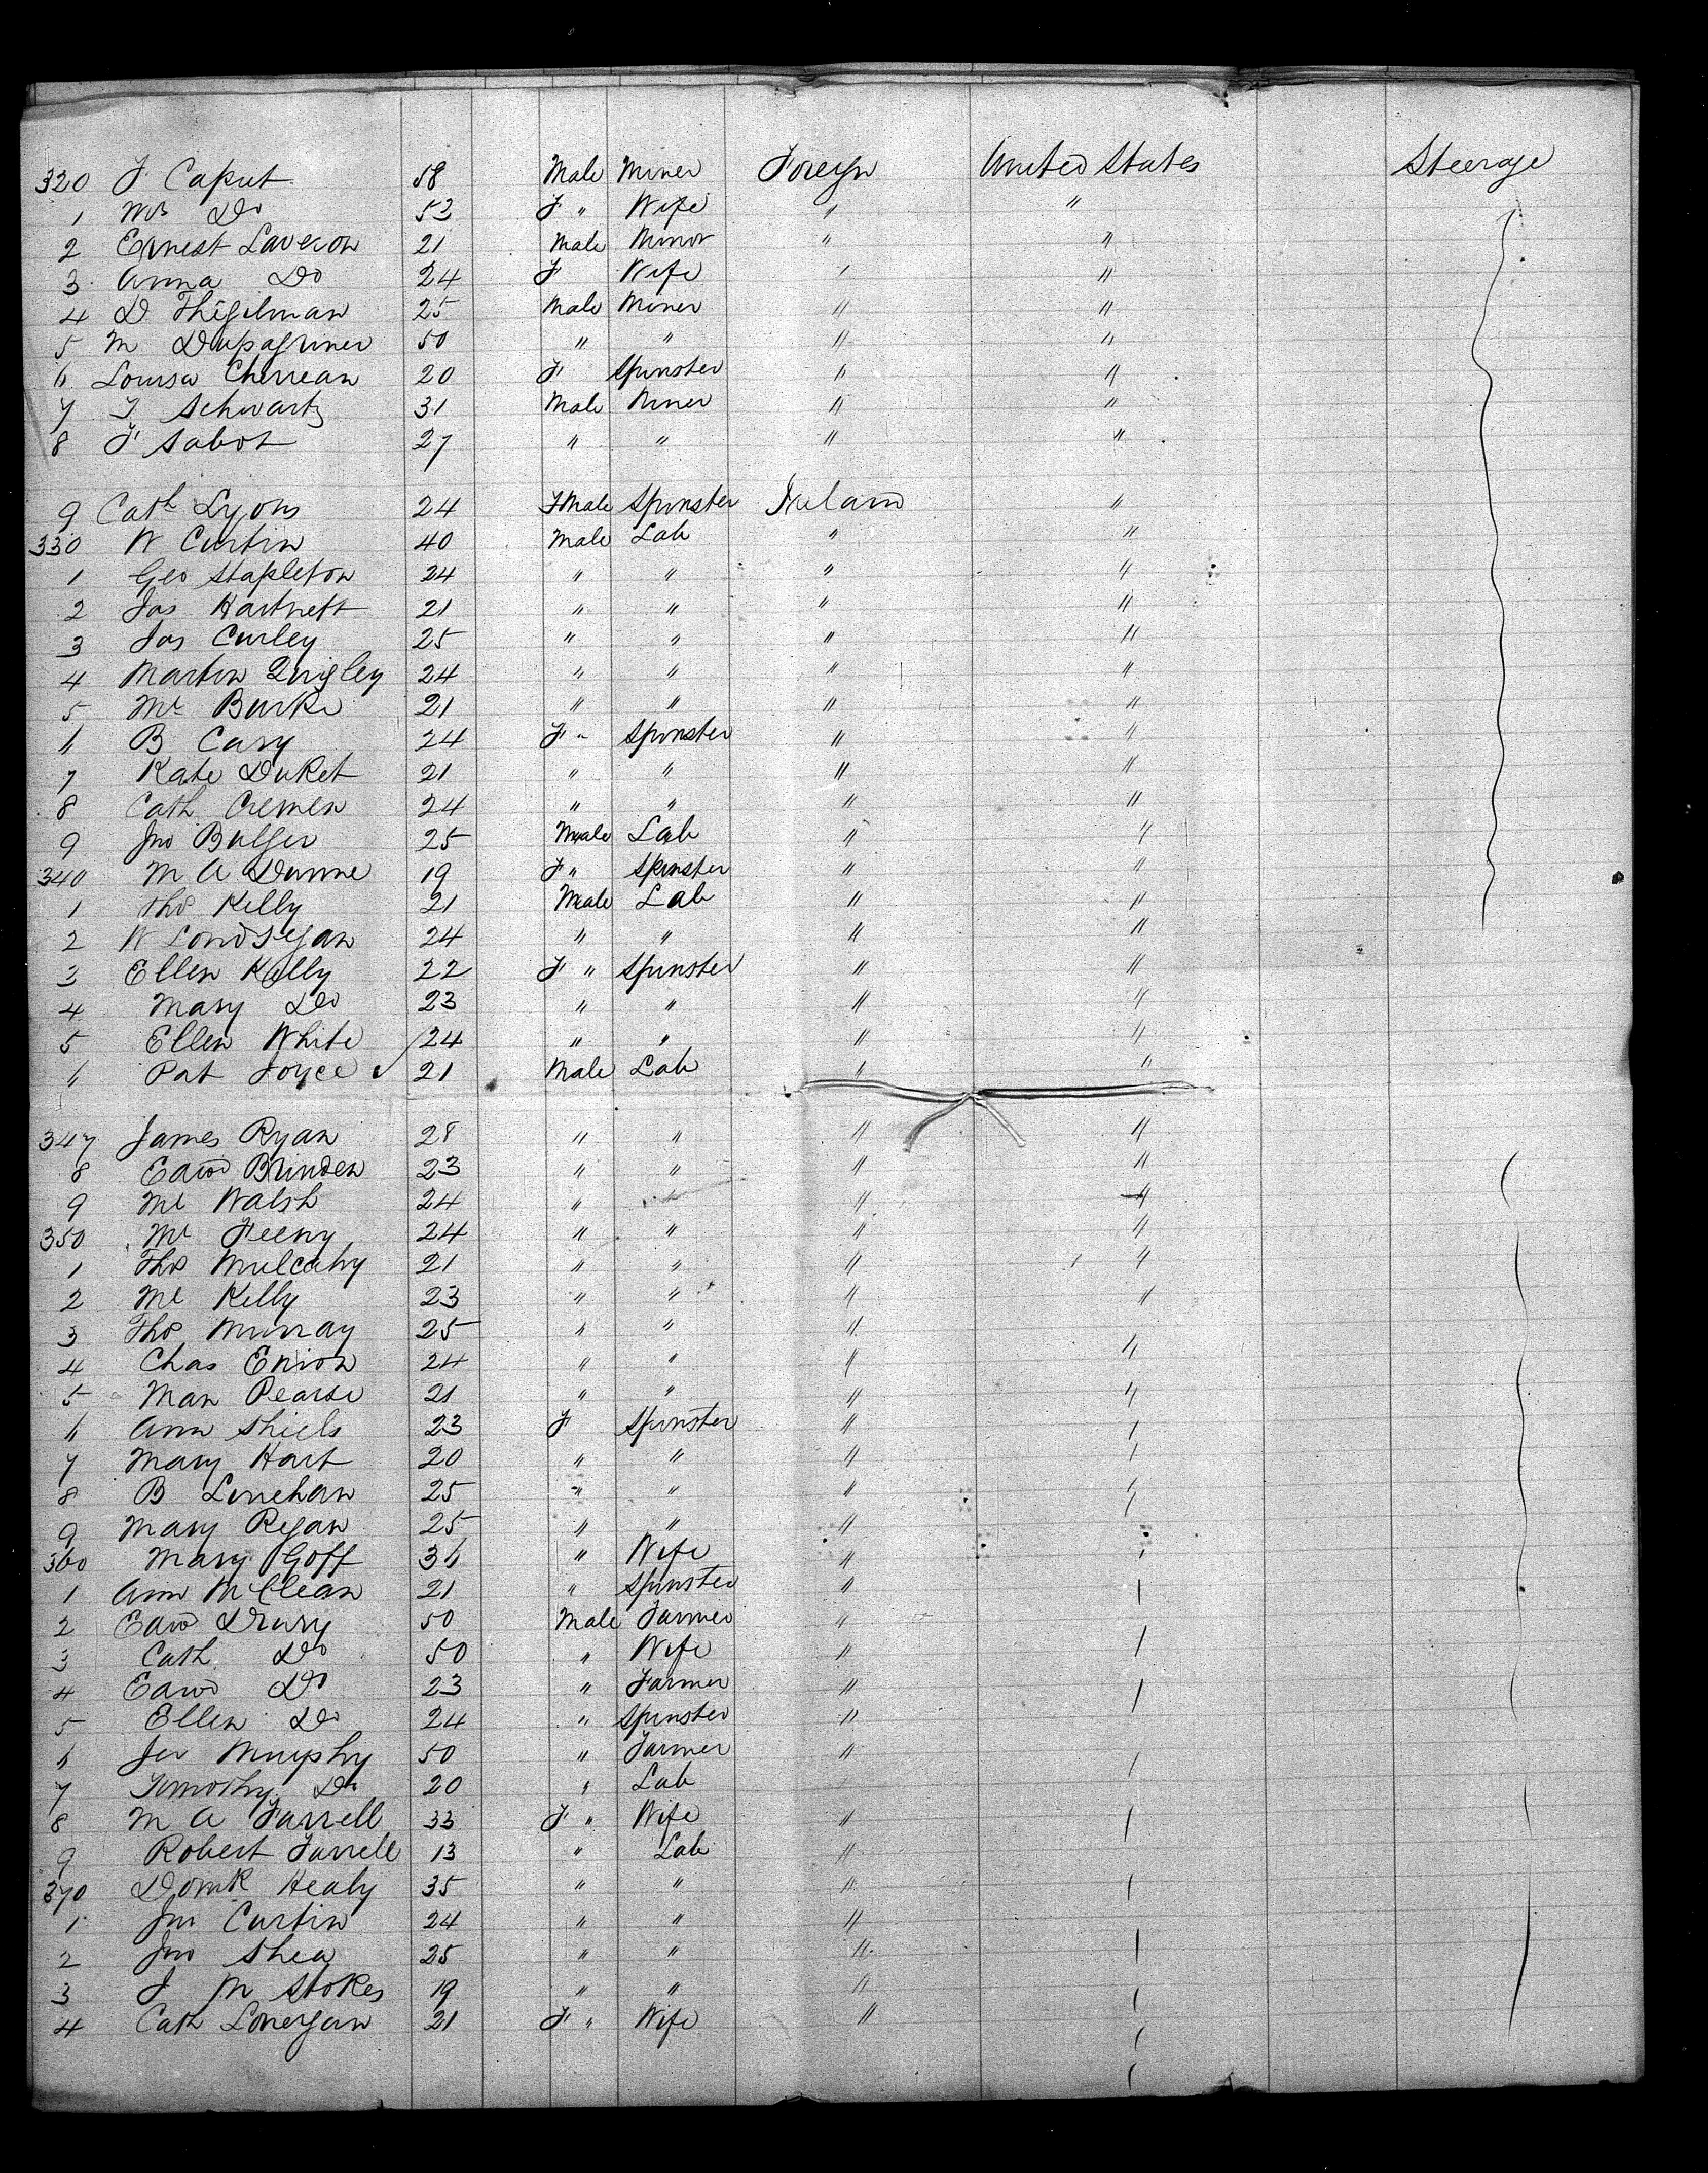 320 F Caput 58 Male Miner Foreign United States Steerage
1 Mrs Do 53 F " Wife " "
2 Ernest Laveron 21 Male Minor " "
3 Anna Do 24 F Wife " "
4 D Thigilman 25 Male Miner " "
5 M 50 " " " "
6 Louisa Cherrean 20 F Spinster " "
7 Schwartz 31 Male Miner " "
8 F Sabot 27 " " " "
9 Cath Lyons 24 FMale Spinster Ireland "
330 W Curtin 40 Male Lab " "
1 Geo Stapleton 24 " " " "
2 Jas Hartnett 21 " " " "
3 Jas Curley 25 " " " "
4 Martin Quigley 24 " " " "
5 Ml Burke 21 " " " "
6 B Cary 24 F " Spinster " "
7 Kate Duket 21 " " " "
8 Cath Cremen 24 " " " "
9 Jno Bulger 25 Male Lab " "
340 M A Dunne 19 F " Spinster " "
1 Thos Kelly 21 Male Lab " "
2 W 24 " " " "
3 Ellen Kelly 22 F " Spinster " "
4 Mary Do 23 " " " "
5 Ellen White 24 " " " "
6 Pat Joyce 21 Male Lab " "
347 James Ryan 28 " " " "
8 Edwd Brinden 23 " " " "
9 Ml Walsh 24 " " " "
350 Ml Feeny 24 " " " "
1 Thos Mulcahy 21 " " " "
2 Ml Kelly 23 " " " "
3 Thos Murray 25 " " "
4 Chas Enion 24 " " " "
5 Man Pearse 21 " " " "
6 Ann Shiels 23 F Spinster " "
7 Mary Hart 20 " " " "
8 B Linehan 25 " " " "
9 Mary Regan 25 " " " "
360 Mary Goff 36 " Wife " "
1 Ann McClean 21 " Spinster " "
2 Edwd Drury 50 Male Farmer "
3 Cath Do 50 " Wife " "
4 Edwd Do 23 " Farmer " "
5 Ellen Do 24 " Spinster "
6 Jer Murphy 50 " Farmer " "
7 Timothy Do 20 " Lab
8 M A Farrell 33 F " Wife " "
9 Robert Farrell 13 " Lab "
370 Domk Healy 35 " " " "
1 Jno Curtin 24 " " "
2 Jno Shea 25 " " " "
3 J M Stokes 19 " " " "
4 Cath Lonergan 21 F " Wife " "